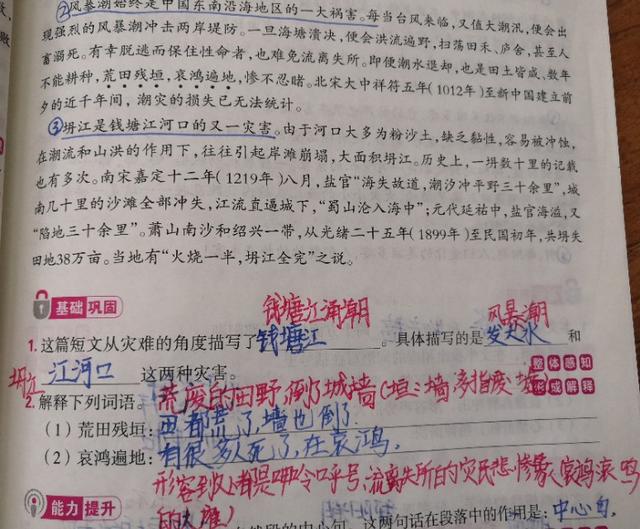 ②风暴潮始终是中国东南沿海地区的一大祸害。每当台风来临，又值大潮汛，便会出
现强烈的风暴潮冲击两岸堤防。一旦海塘溃决，便会洪流遍野，扫荡田禾、庐舍，甚至人
畜溺死。有幸脱逃而保住性命者，也难免流离失所。即便潮水退却，也是田土皆咸，数年
不能耕种，荒田残垣，哀鸿遍地，惨不忍睹。北宋大中祥符五年（1012年）至新中国建立前
夕的近千年间，潮灾的损失已无法统计。
③坍江是钱塘江河口的又一灾害。由于河口大多为粉沙土，缺乏黏性，容易被冲蚀，
在潮流和山洪的作用下，往往引起岸滩崩塌，大面积坍江。历史上，一坍数十里的记载
也有多次。南宋嘉定十二年（1219年）八月，盐官“海失故道，潮汐冲平野三十余里”，城
南几十里的沙滩全部冲失，江流直逼城下，“蜀山沦入海中”；元代延祐中，盐官海溢，又
“陷地三十余里”。萧山南沙和绍兴一带，从光绪二十五年（1899年）至民国初年，共坍失
田地38万亩。当地有“火烧一半，坍江全完”之说。
1 基础巩固
钱塘江涌潮 风暴潮
1.这篇短文从灾难的角度描写了钱塘江。具体描写的是发大水和
坍江 江河口 这两种灾害。
整体感知
2.解释下列词语。
荒废的田野，倒了城墙（垣：墙，多指
（1）荒田残垣：田都荒了，墙也倒了.
（2）哀鸿遍地：有很多人死了，在哀鸿.
形容到处都是呻吟呼号、流离失所的灾民悲惨象（哀鸿：哀鸣
的大雁）
能力提升
段的中心句，这两句话在段落中的作用是：中心句，